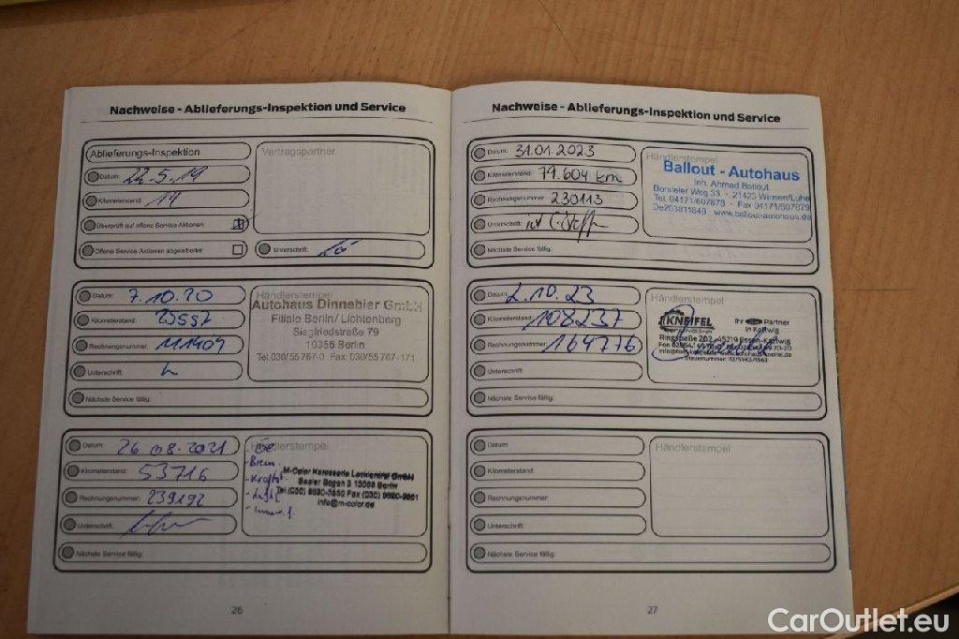 Nachweise - Ablieferungs-Inspektion und Service
Ablieferungs-Inspektion
Vertragspartner
Datum: 22.5.19
Kilometerstand: 14
Überprüft auf offene Service Aktionen:
Offene Service Aktionen abgearbeitet:
Unterschrift:
Datum: 7.10.20
Kilometerstand:
Rechnungsnummer: 111404
Unterschrift:
Nächste Service fällig:
Händlerstempel
Autohaus Dinnebier GmbH
Filiale Berlin / Lichtenberg
Siegfriedstraße 79
10365 Berlin
Tel. 030/55 767-0 Fax: 030/55 767-171
Datum: 26 08.2021
Kilometerstand: 53716
Rechnungsnummer: 239192
Unterschrift:
Nächste Service fällig:
Händlerstempel
M-Color Karosserie Lackiererei GmbH
Berlin
info@m-color.de
26
Nachweise - Ablieferungs-Inspektion und Service
Datum: 31.01.2023
Kilometerstand: 79.604 km
Rechnungsnummer: 230113
Unterschrift:
Nächste Service fällig:
Händlerstempel
Ballout - Autohaus
Inh. Ahmad Ballout
Borsteler Weg 33 - 21423 Winsen/Luhe
Tel. 04171/607878 - Fax 04171/607879
www.ballout-autohaus.de
Datum: 2.10.23
Kilometerstand: 108237
Rechnungsnummer: 164776
Unterschrift:
Nächste Service fällig:
Händlerstempel
KNEIFEL
Ihr Partner
in Kettwig
Ringstraße 202 · 45219 Essen-Kettwig
Datum:
Kilometerstand:
Rechnungsnummer:
Unterschrift:
Nächste Service fällig:
Händlerstempel
27
CarOutlet.eu